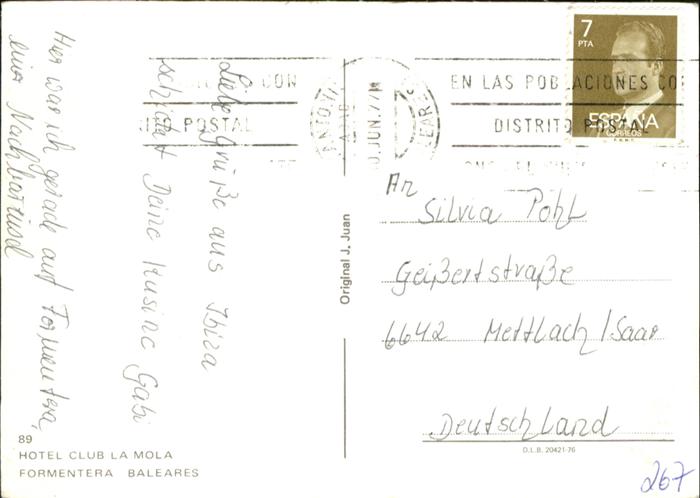 Hier war ich gerade auf Formentera,
einer Nachbarinsel
Liebe Grüße aus Ibiza
schickt Deine Kusine Gabi
Original J. Juan
7
PTA
ESPAÑA
CORREOS
EN LAS POBLACIONES CON
DISTRITO POSTAL
CON
DISTRITO POSTAL
JUN. 77
An
Silvia Pohl
Geißertstraße
6642 Mettlach/Saar
Deutschland
D.L.B. 20421-76
89
HOTEL CLUB LA MOLA
FORMENTERA BALEARES
267